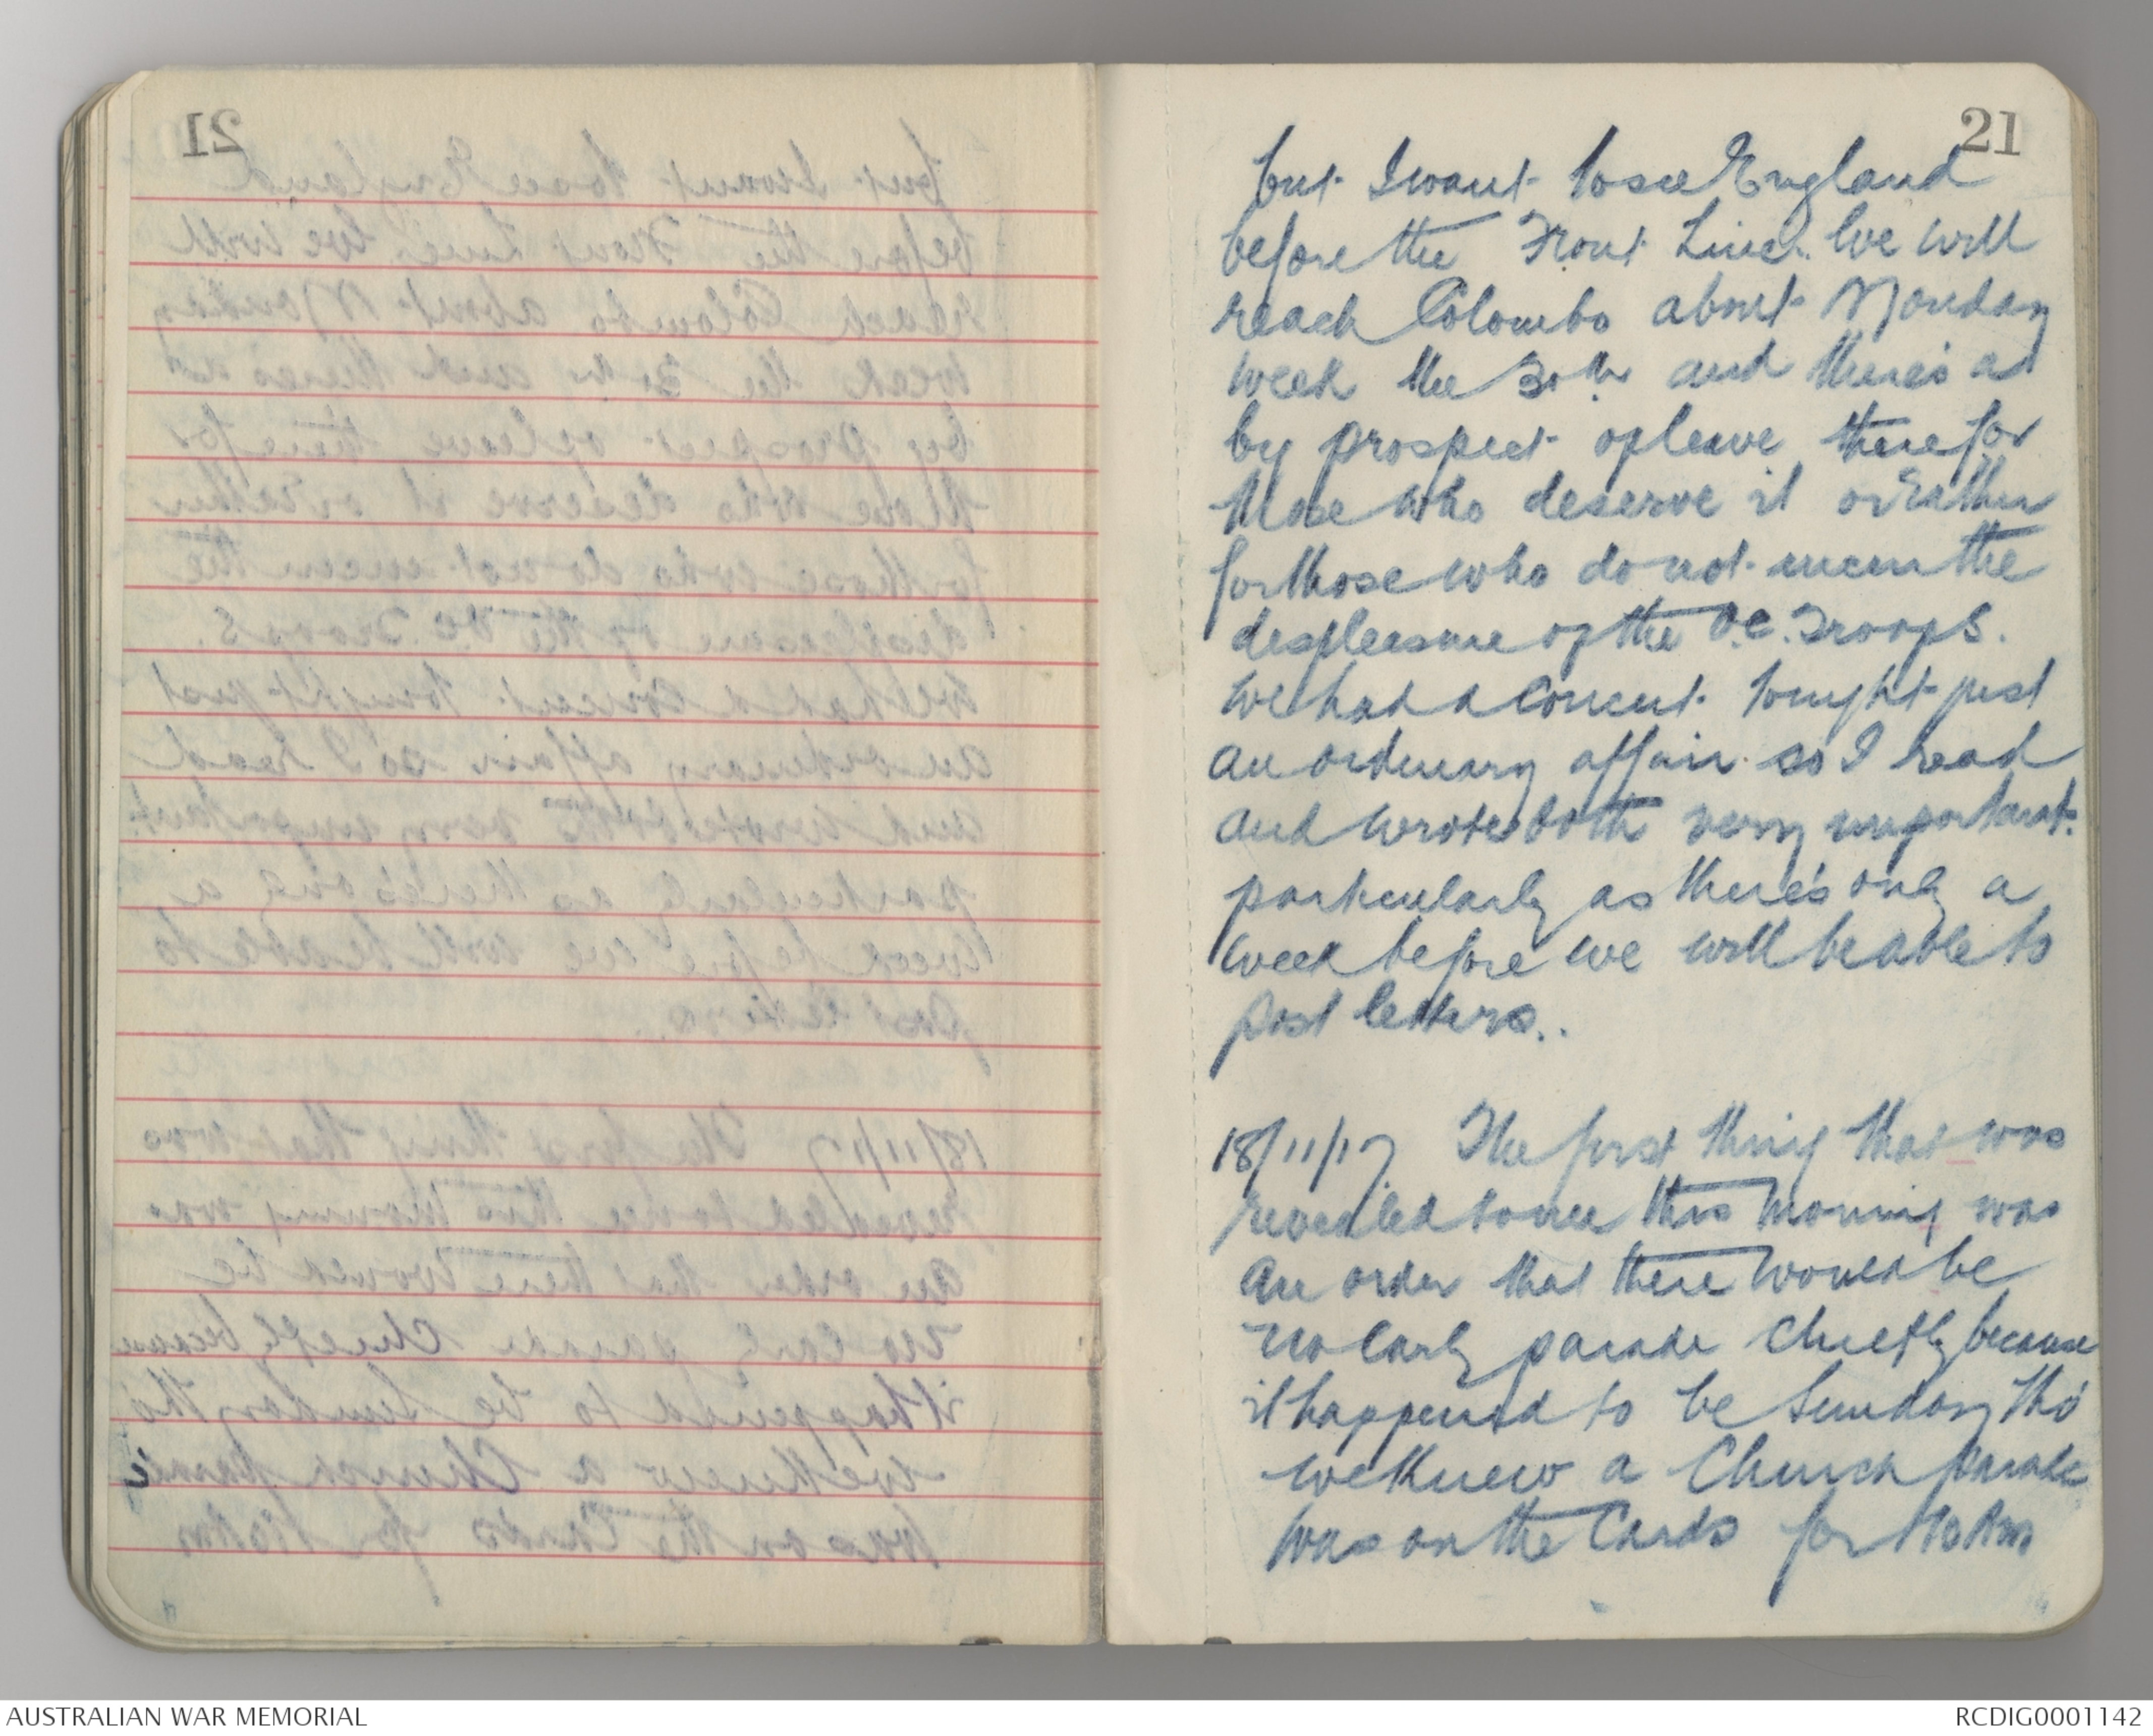 21
but I want to see England
before the Front Line. We will
reach Colombo about Monday
week the 30th and there's a
by prospect of leave there for
those who deserve it or rather
for those who do not incur the
displeasure of the O.C. Troops.
We had a Concert tonight just
an ordinary affair so I read
and wrote both very important.
particularly as there's only a
week before we will be able to
post letters..
18/11/17 The first thing that was
revealed to me this morning was
an order that there would be
no Early parade Chiefly because
it happened to be Sunday tho'
we knew a Church parade
was on the Cards for 10 Am
AUSTRALIAN WAR MEMORIAL
RCDIG0001142